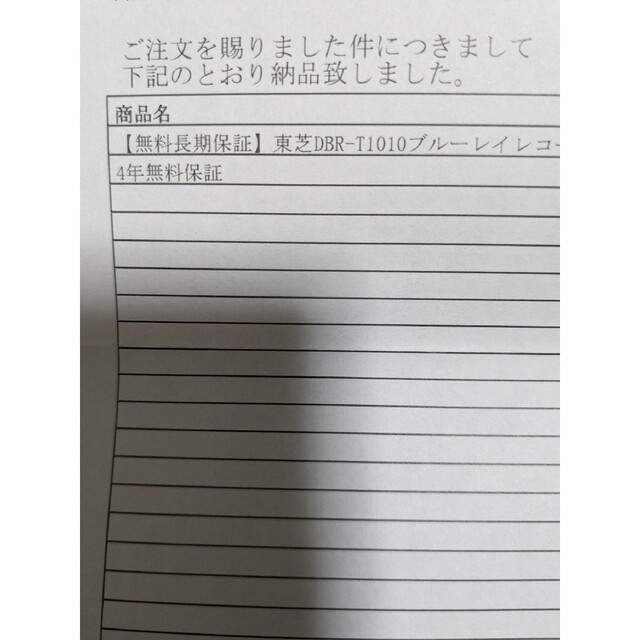 ご注文を賜りました件につきまして
下記のとおり納品致しました。
商品名
【無料長期保証】東芝DBR-T1010ブルーレイレコー
4年無料保証